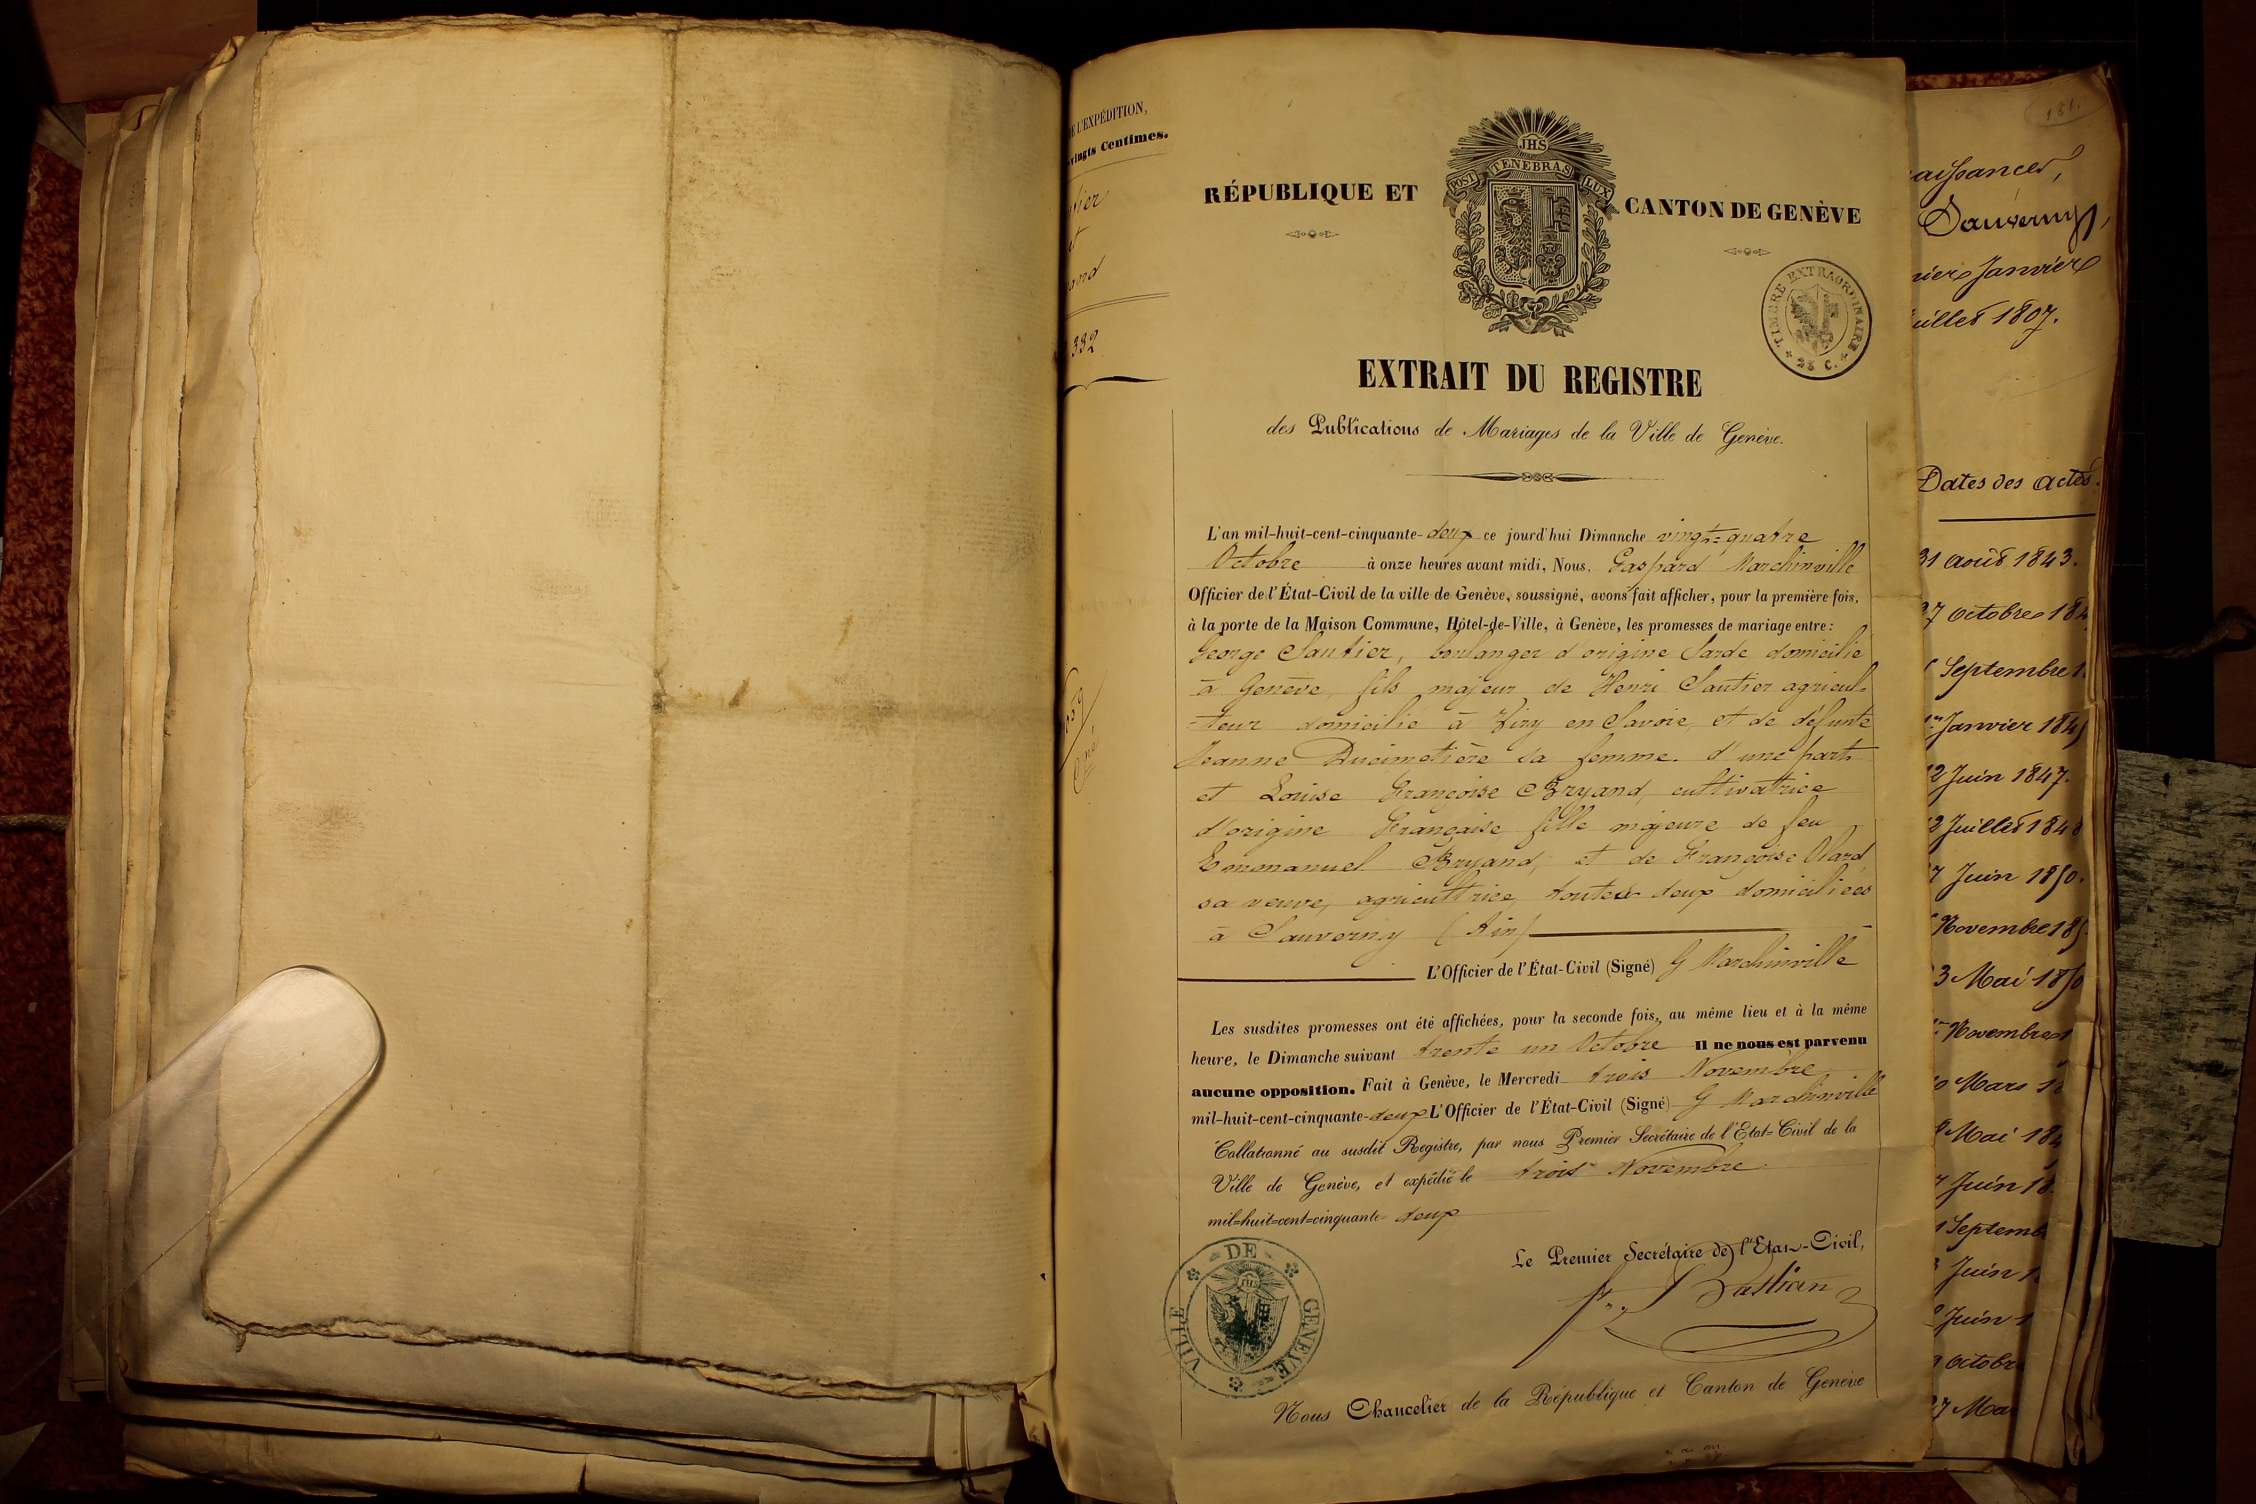 DE L'EXPÉDITION,
vingts Centimes.
tier
et
and
332
JHS
POST TENEBRAS LUX
RÉPUBLIQUE ET CANTON DE GENÈVE
TIMBRE EXTRAORDINAIRE
25 C.
EXTRAIT DU REGISTRE
des Publications de Mariages de la Ville de Genève.
L'an mil-huit-cent-cinquante-deux ce jourd'hui Dimanche vingt-quatre
Octobre à onze heures avant midi, Nous, Gaspard Marchinville
Officier de l'État-Civil de la ville de Genève, soussigné, avons fait afficher, pour la première fois,
à la porte de la Maison Commune, Hôtel-de-Ville, à Genève, les promesses de mariage entre:
George Sautier, boulanger d'origine Sarde domicilié
à Genève, fils majeur de Henri Sautier agricul-
-teur domicilié à Viry en Savoie, et de défunte
Jeanne Ducimetière sa femme. d'une part
et Louise Françoise Bryand, cultivatrice
d'origine Française fille majeure de feu
Emmanuel Bryand, et de Françoise Olard
sa veuve, agricultrice, toutes deux domiciliées
à Sauverny (Ain)
L'Officier de l'État-Civil (Signé) G Marchinville
Les susdites promesses ont été affichées, pour la seconde fois, au même lieu et à la même
heure, le Dimanche suivant trente un Octobre Il ne nous est parvenu
aucune opposition. Fait à Genève, le Mercredi trois Novembre
mil-huit-cent-cinquante-deux L'Officier de l'État-Civil (Signé) G Marchinville
Collationné au susdit Registre, par nous Premier Secrétaire de l'Etat=Civil de la
Ville de Genève, et expédié le trois Novembre
mil=huit=cent=cinquante deux
Le Premier Secrétaire de l'Etat-Civil,
Bastian
VILLE DE GENÈVE
JHS
Nous Chancelier de la République et Canton de Genève
181.
aissances,
Sauverny,
nier Janvier
uillet 1807.
Dates des actes.
31 août 1843.
27 octobre 184
Septembre 1
1er Janvier 184
12 Juin 1847.
2 Juillet 184
7 Juin 1850.
Novembre 185
3 Mai 1850
Novembre 1
Mars 1
Mai 184
Juin 18
1 Septemb
Juin 1
Juin 1
octobr
27 Mai